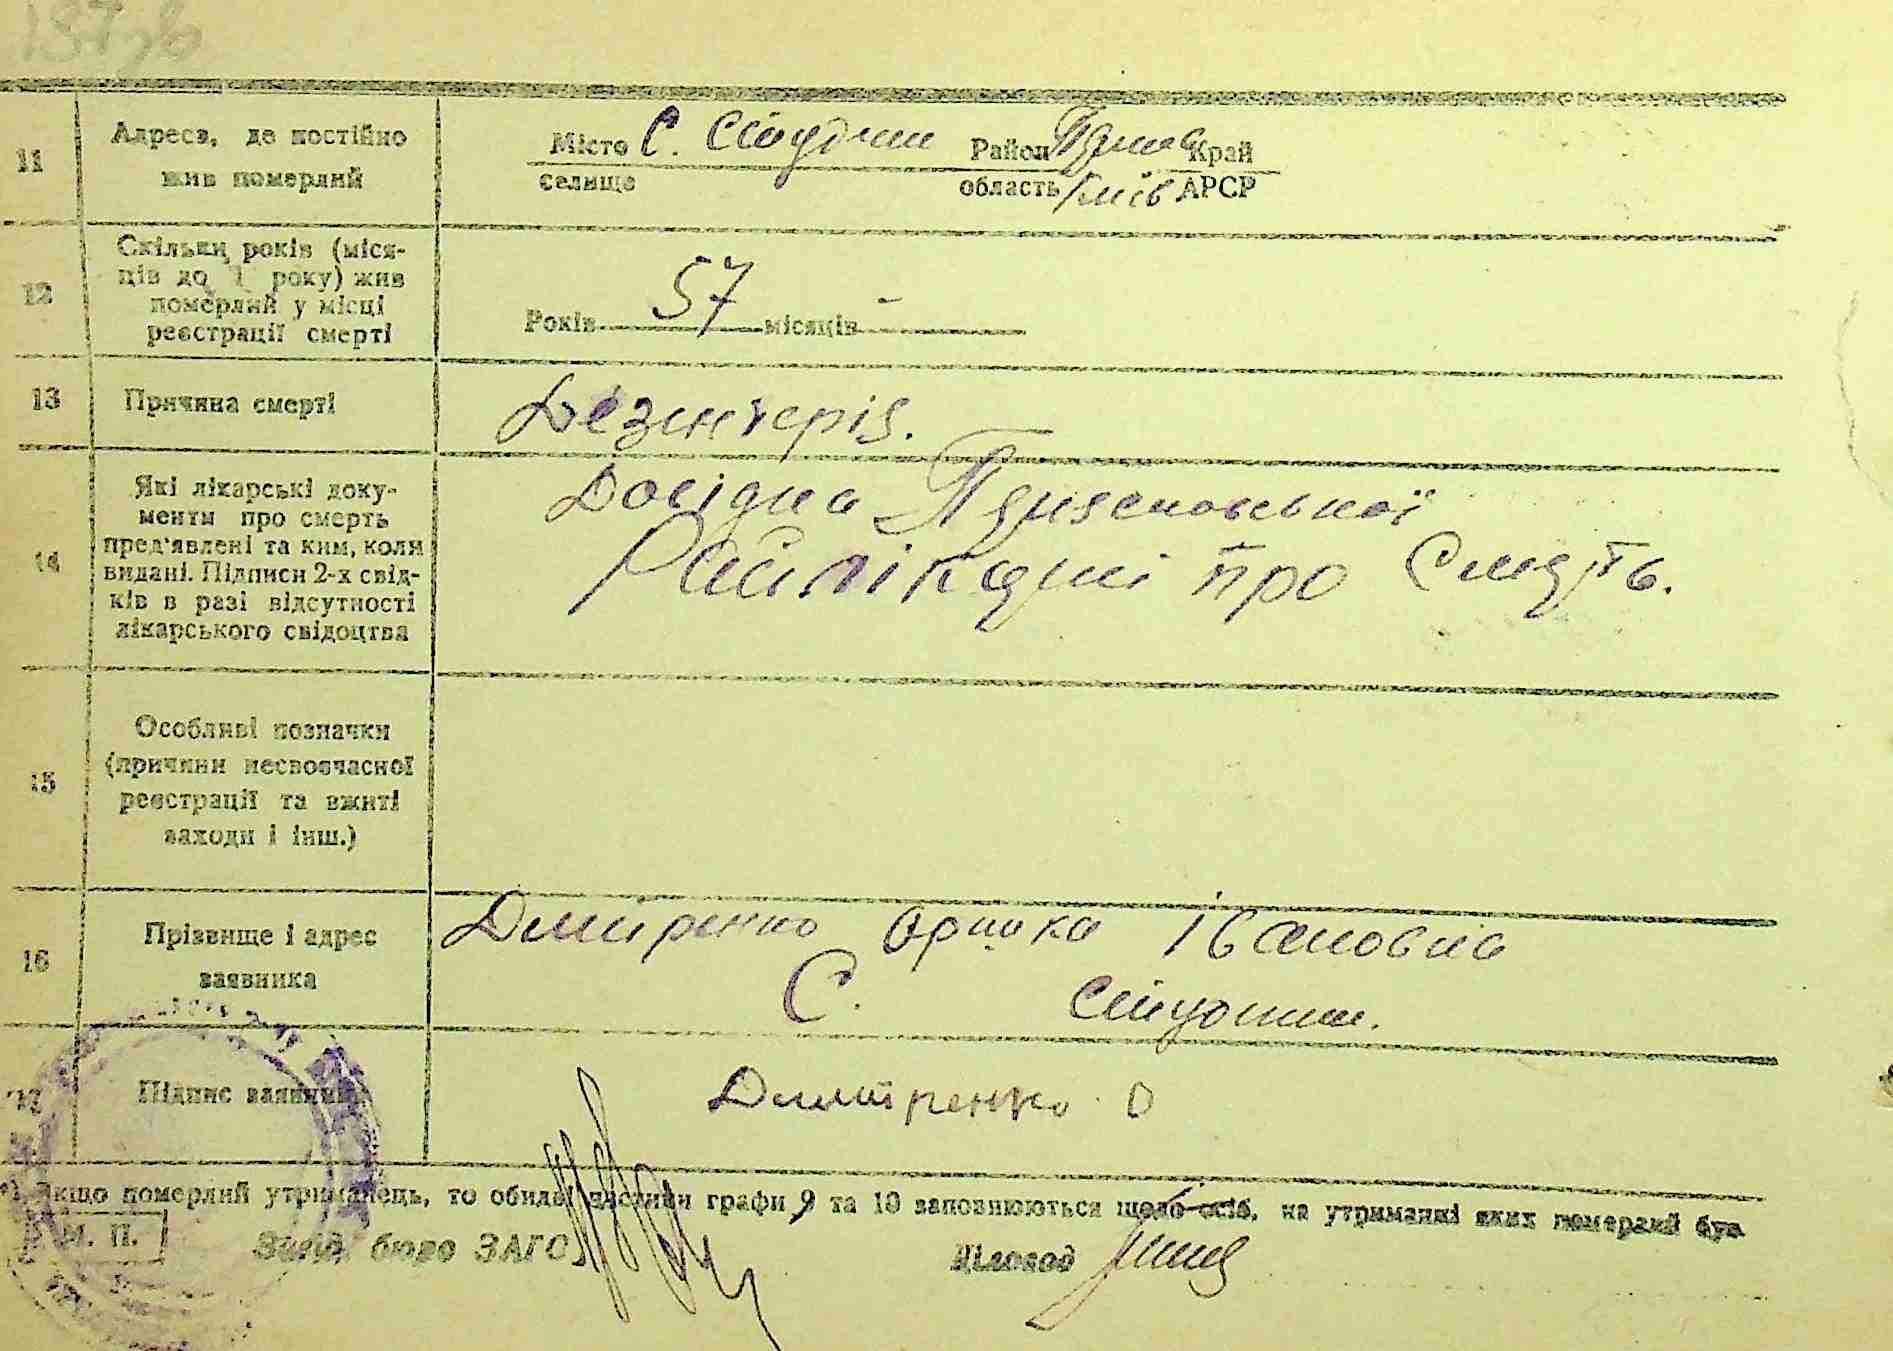 11
Адреса, де постійно
жив померлий
Місто С. Студеник Район Переяс Край
селище область Київ АРСР
12
Скільки років (міся-
ців до 1 року) жив
померлий у місці
реєстрації смерті
Років 57 місяців -
13
Причина смерті
Дезинтерія.
14
Які лікарські доку-
менти про смерть
пред'явлені та ким, коли
видані. Підписи 2-х свід-
ків в разі відсутності
лікарського свідоцтва
Довідка
Райлікарні про смерть.
15
Особливі позначки
(причини несвоєчасної
реєстрації та вжиті
заходи і інш.)
16
Прізвище і адрес
заявника
Дмитренко Оришка Івановна
С.
17
Підпис заявника
Дмитренко О
*) Якщо померлий утриманець, то обидві частини графи 9 та 10 заповнюються щодо осіб, на утриманні яких померлий був
М. П.
Завід. бюро ЗАГС
Діловод